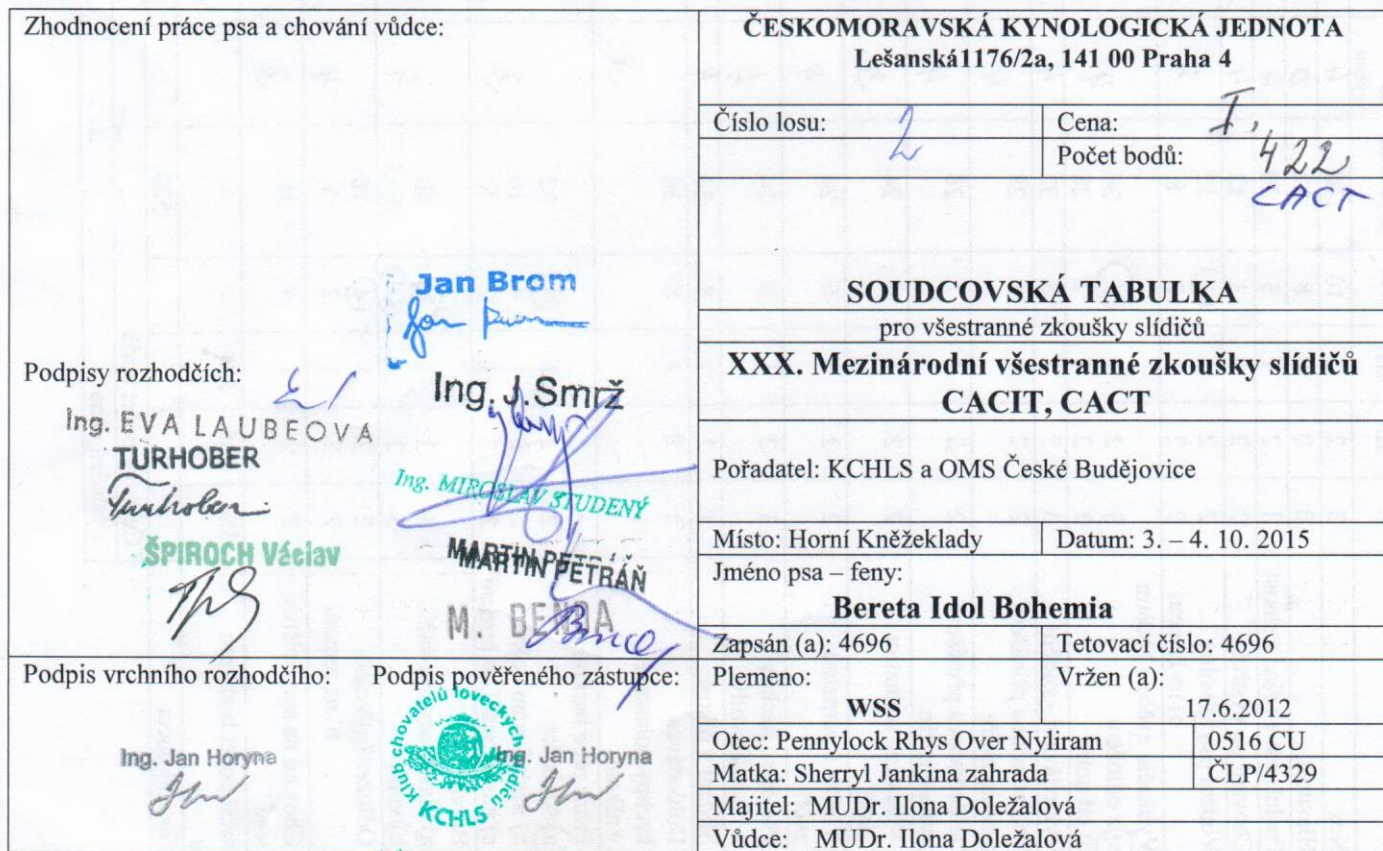 Zhodnocení práce psa a chování vůdce:
Jan Brom
Podpisy rozhodčích:
Ing. J. Smrž
Ing. EVA LAUBEOVA
TURHOBER
Ing. MIROSLAV STUDENÝ
ŠPIROCH Václav
MARTIN PETRÁŇ
M. BENDA
Podpis vrchního rozhodčího:
Podpis pověřeného zástupce:
Ing. Jan Horyna
Klub chovatelů loveckých slídičů
KCHLS
Ing. Jan Horyna
ČESKOMORAVSKÁ KYNOLOGICKÁ JEDNOTA
Lešanská1176/2a, 141 00 Praha 4
Číslo losu: 2
Cena: I,
Počet bodů: 422
CACT
SOUDCOVSKÁ TABULKA
pro všestranné zkoušky slídičů
XXX. Mezinárodní všestranné zkoušky slídičů
CACIT, CACT
Pořadatel: KCHLS a OMS České Budějovice
Místo: Horní Kněžeklady
Datum: 3. – 4. 10. 2015
Jméno psa – feny:
Bereta Idol Bohemia
Zapsán (a): 4696
Tetovací číslo: 4696
Plemeno:
WSS
Vržen (a):
17.6.2012
Otec: Pennylock Rhys Over Nyliram
0516 CU
Matka: Sherryl Jankina zahrada
ČLP/4329
Majitel: MUDr. Ilona Doležalová
Vůdce: MUDr. Ilona Doležalová